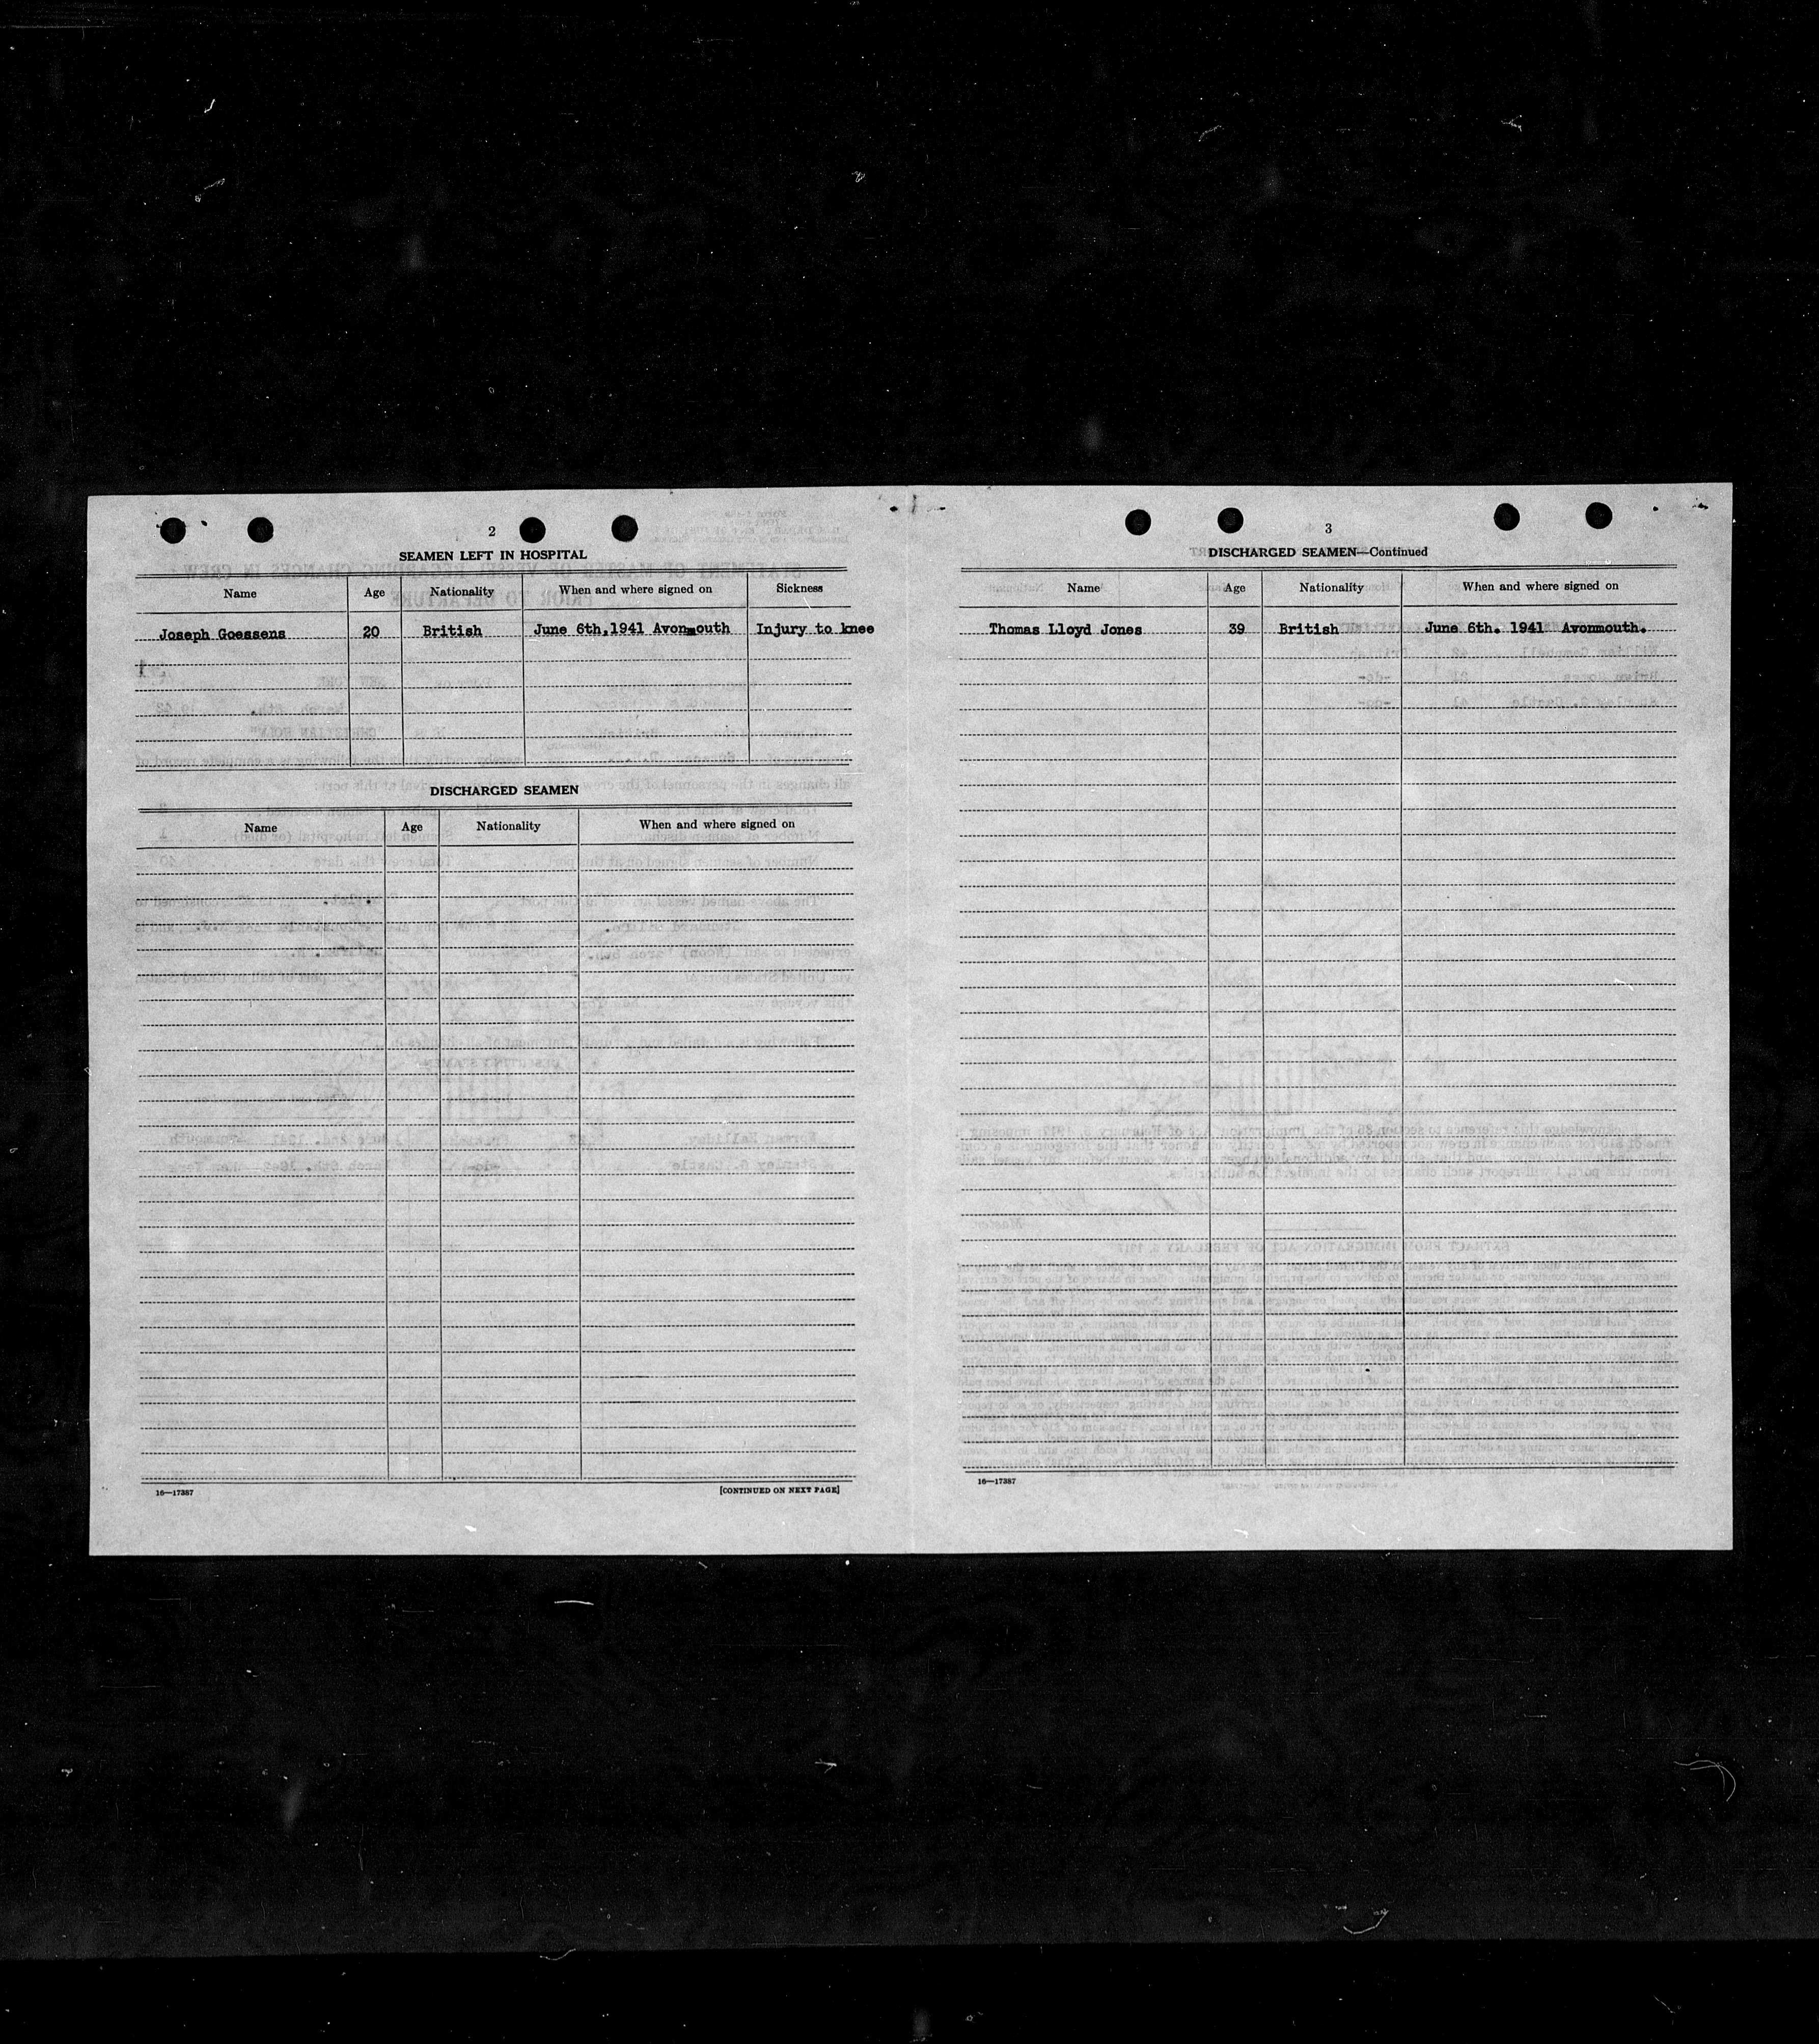 2
SEAMEN LEFT IN HOSPITAL
Name Age Nationality When and where signed on Sickness
Joseph Goessens 20 British June 6th,1941 Avonmouth Injury to knee
DISCHARGED SEAMEN
Name Age Nationality When and where signed on
16—17387 [CONTINUED ON NEXT PAGE]
3
DISCHARGED SEAMEN—Continued
Name Age Nationality When and where signed on
Thomas Lloyd Jones 39 British June 6th. 1941 Avonmouth.
16—17387